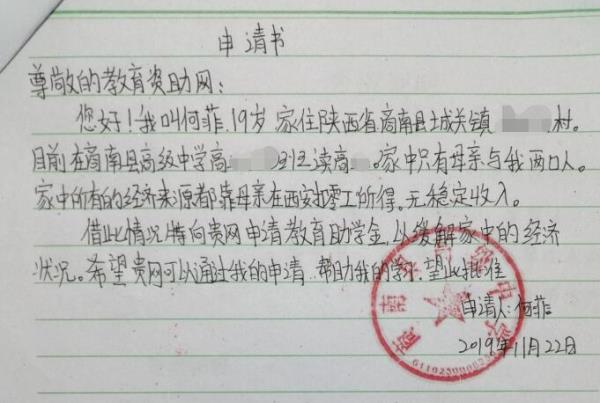 申请书
尊敬的教育资助网:
您好!我叫何菲,19岁 家住陕西省商南县城关镇 村.
目前在商南县高级中学高 班读高 。家中只有母亲与我两口人。
家中所有的经济来源都靠母亲在西安打零工所得.无稳定收入。
借此情况特向贵网申请教育助学金,以缓解家中的经济
状况。希望贵网可以通过我的申请 帮助我的学 望此批准
申请人:何菲
2019年11月22日